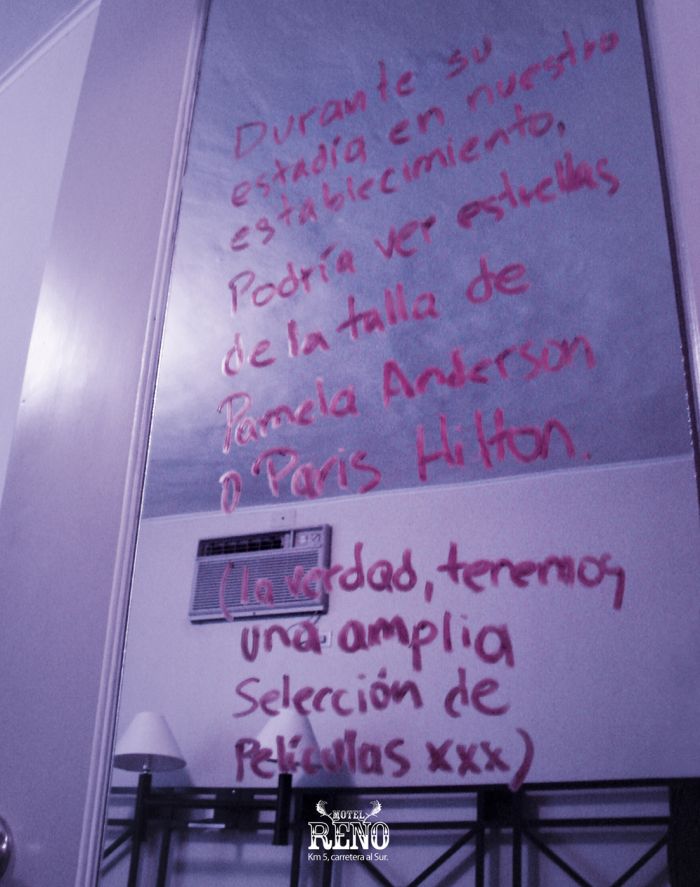 Durante su
estadía en nuestro
establecimiento,
Podría ver estrellas
de la talla de
Pamela Anderson
o Paris Hilton.
(la verdad, tenemos
una amplia
Selección de
Películas xxx)
MOTEL
RENO
Km 5, carretera al Sur.